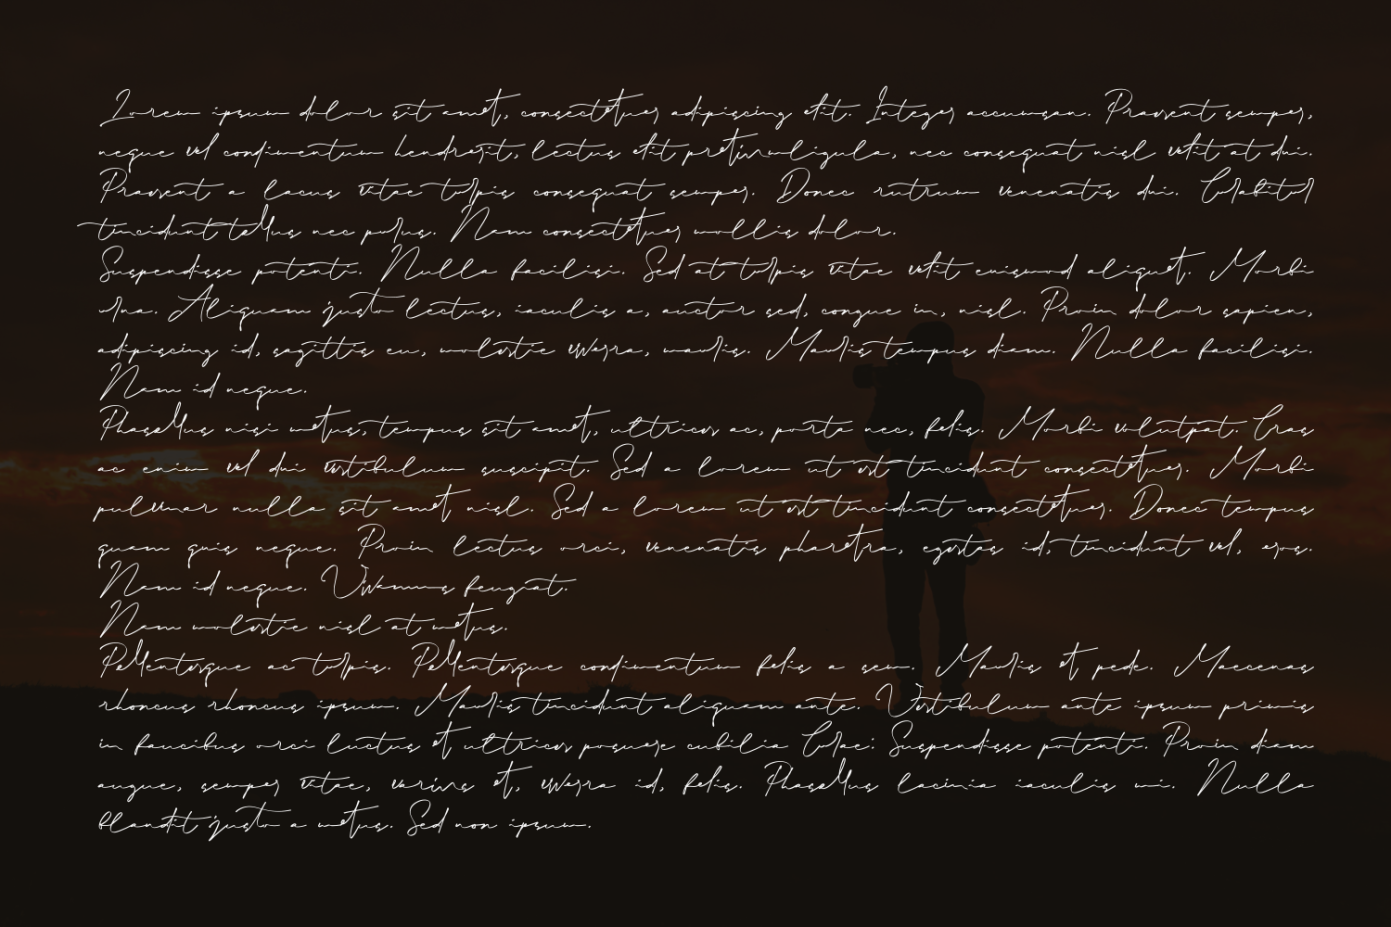 Lorem ipsum dolor sit amet, consectetuer adipiscing elit. Integer accumsan. Praesent semper,
neque vel condimentum hendrerit, lectus elit pretiumligula, nec consequat nisl velit at dui.
Praesent a lacus vitae turpis consequat semper. Donec rutrum venenatis dui. Curabitur
tincidunt tellus nec purus. Nam consectetuer mollis dolor.
Suspendisse potenti. Nulla facilisi. Sed at turpis vitae velit euismod aliquet. Morbi
urna. Aliquam justo lectus, iaculis a, auctor sed, congue in, nisl. Proin dolor sapien,
adipiscing id, sagittis eu, molestie viverra, mauris. Mauris tempus diam. Nulla facilisi.
Nam id neque.
Phasellus nisi metus, tempus sit amet, ultrices ac, porta nec, felis. Morbi volutpat. Cras
ac enim vel dui vestibulum suscipit. Sed a lorem ut est tincidunt consectetuer. Morbi
pulvinar nulla sit amet nisl. Sed a lorem ut est tincidunt consectetuer. Donec tempus
quam quis neque. Proin lectus orci, venenatis pharetra, egestas id, tincidunt vel, eros.
Nam id neque. Vivamus feugiat.
Nam molestie nisl at metus.
Pellentesque ac turpis. Pellentesque condimentum felis a sem. Mauris et pede. Maecenas
rhoncus rhoncus ipsum. Mauris tincidunt aliquam ante. Vestibulum ante ipsum primis
in faucibus orci luctus et ultrices posuere cubilia Curae; Suspendisse potenti. Proin diam
augue, semper vitae, varius et, viverra id, felis. Phasellus lacinia iaculis mi. Nulla
blandit justo a metus. Sed non ipsum.